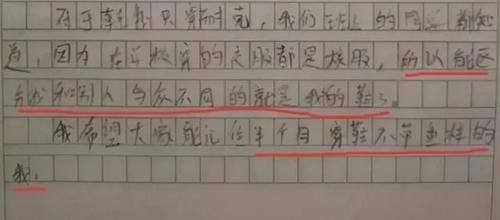 对于鞋我只穿耐克，我们班上的同学都知
道，因为在学校穿的衣服都是校服，所以能区
分我和别人与众不同的就是我的鞋了。
我希望大家能记住半个月穿鞋不重样的
我。